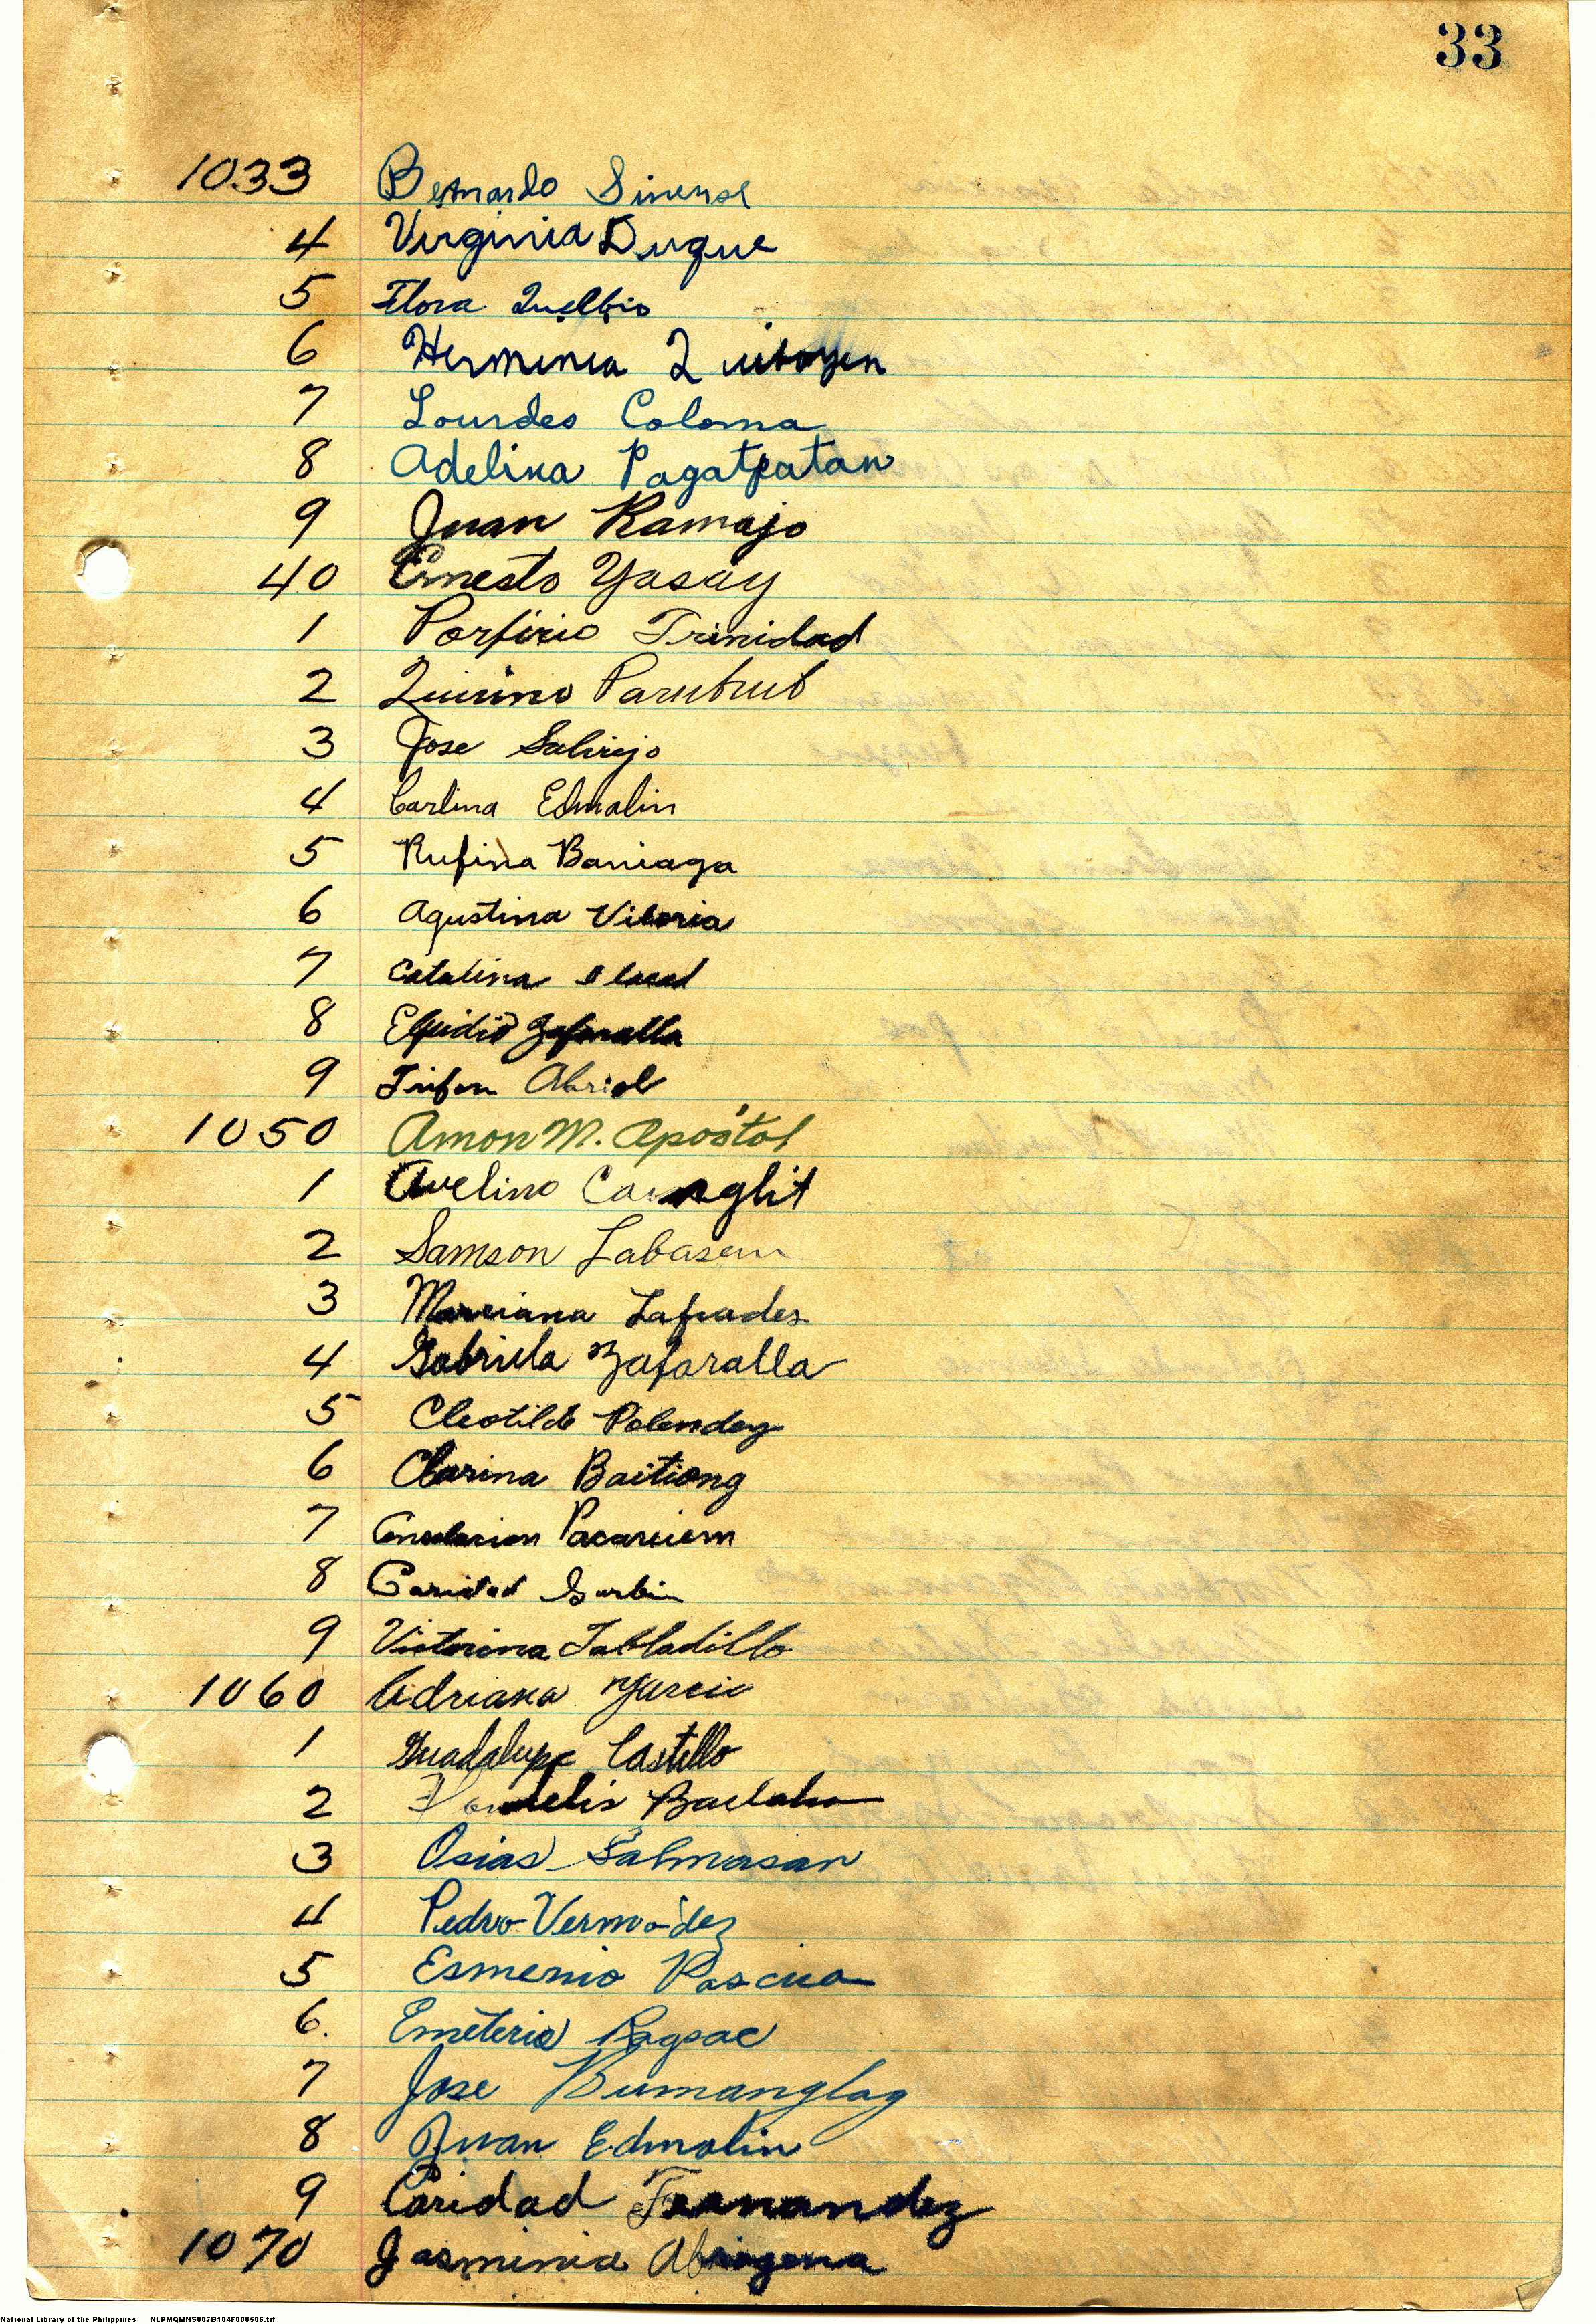 33
1033 Bernardo Sinense
4 Virginia Duque
5 Flora Quelbio
6 Herminia
7 Lourdes Coloma
8 Adelina Pagatpatan
9 Juan Ramajo
40 Ernesto Yasay
1 Porfirio Trinidad
2 Quirino Parubrub
3 Jose Salirijo
4 Carlina Edmalin
5 Rufina Baniaga
6 Agustina Viloria
7 Catalina
8 Elpidio Zafaralla
9 Trifon Abriol
1050 Amon M. Apostol
1 Avelino
2 Samson Labasen
3 Marciana Lafrades
4 Gabriela Zafaralla
5 Cleotilde Polendey
6 Clarina Baitiong
7 Consolacion
8 Caridad
9 Victorina Tabladillo
1060 Adriana Garcia
1 Guadalupe Castillo
2
3 Osias Salmasan
4 Pedro Vermudez
5 Esmenio Pascua
6. Emeterio Ragsac
7 Jose Bumanglag
8 Juan Edmalin
9 Caridad Fernandez
1070 Jasminia Abrogena
National Library of the Philippines NLPMQMNS007B104F000506.tif